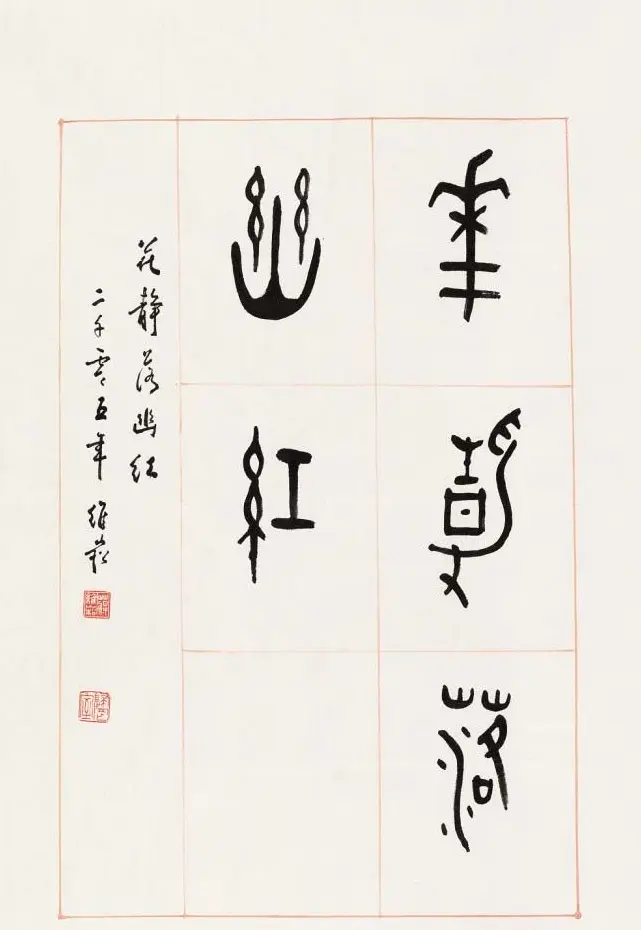 華靜落
幽紅
花靜落幽紅
二千零五年 維